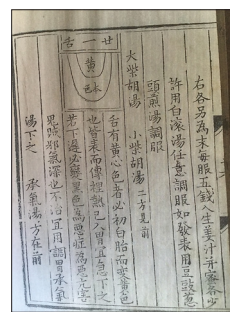 右各另為末每服五錢入生姜汁并蜜各少
許用白滾湯任意調服如發表用豆豉葱
頭煎湯調服
大柴胡湯 小柴胡湯 二方見前
廿一舌
黃
本色
舌有黃心色者必初白胎而變黃色
也皆表而傳裡熱已入胃宜急下之
若下遲必變黑色為惡症為亢害
鬼賊邪氣深也不治宜用調胃承氣
湯下之 承氣湯方在前